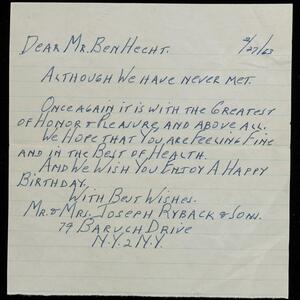 Dear Mr. Ben Hecht.
2/27/63
Although We have never met.
Once again it is with the Greatest
of Honor & Pleasure, and above all.
We Hope That You are Feeling Fine
and in the Best of Health.
And We Wish You Enjoy A Happy
Birthday.
With Best Wishes.
Mr. & Mrs. Joseph Ryback & Sons.
79 Baruch Drive
N.Y. 2 N.Y.